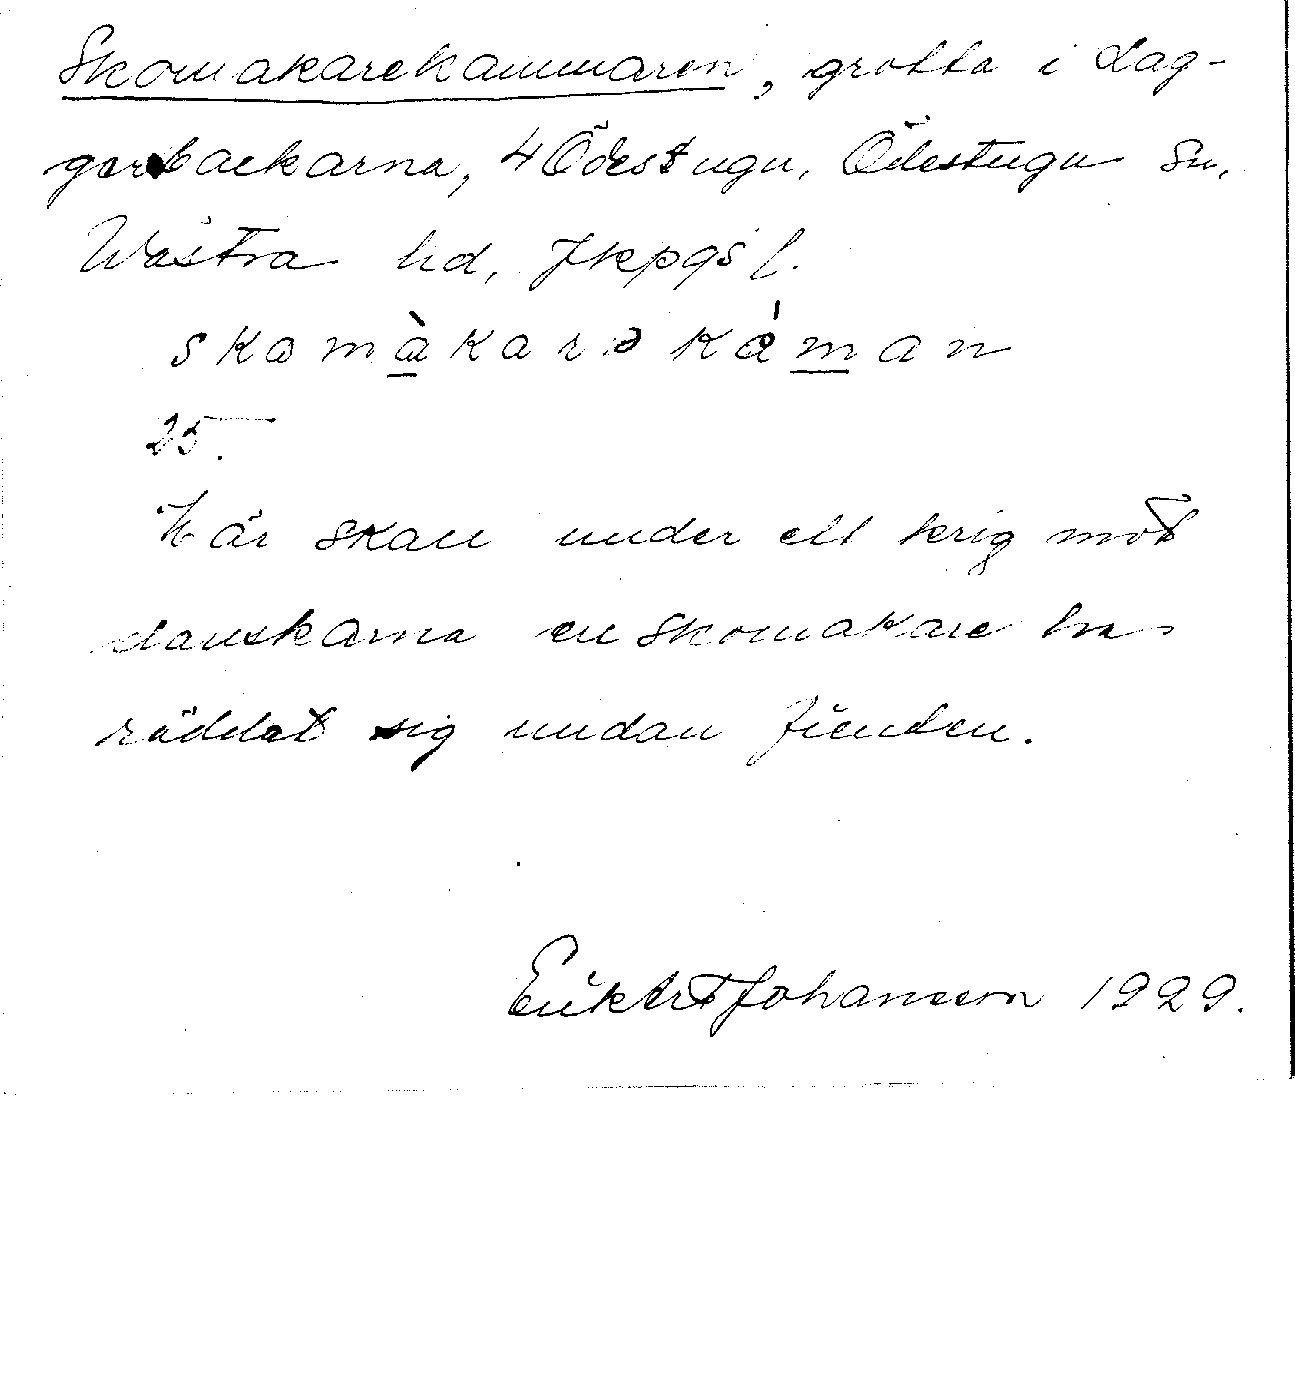 Skomakarekammaren, grotta i dag-
gerbackarna, 4 Ödestugu, Ödestugu sn,
Wästra hd, Jkpgs l.
skomàkarə káman
25.
Här skall under ett krig mot
danskarna en skomakare ha
räddat sig undan fienden.
Johansson 1929.